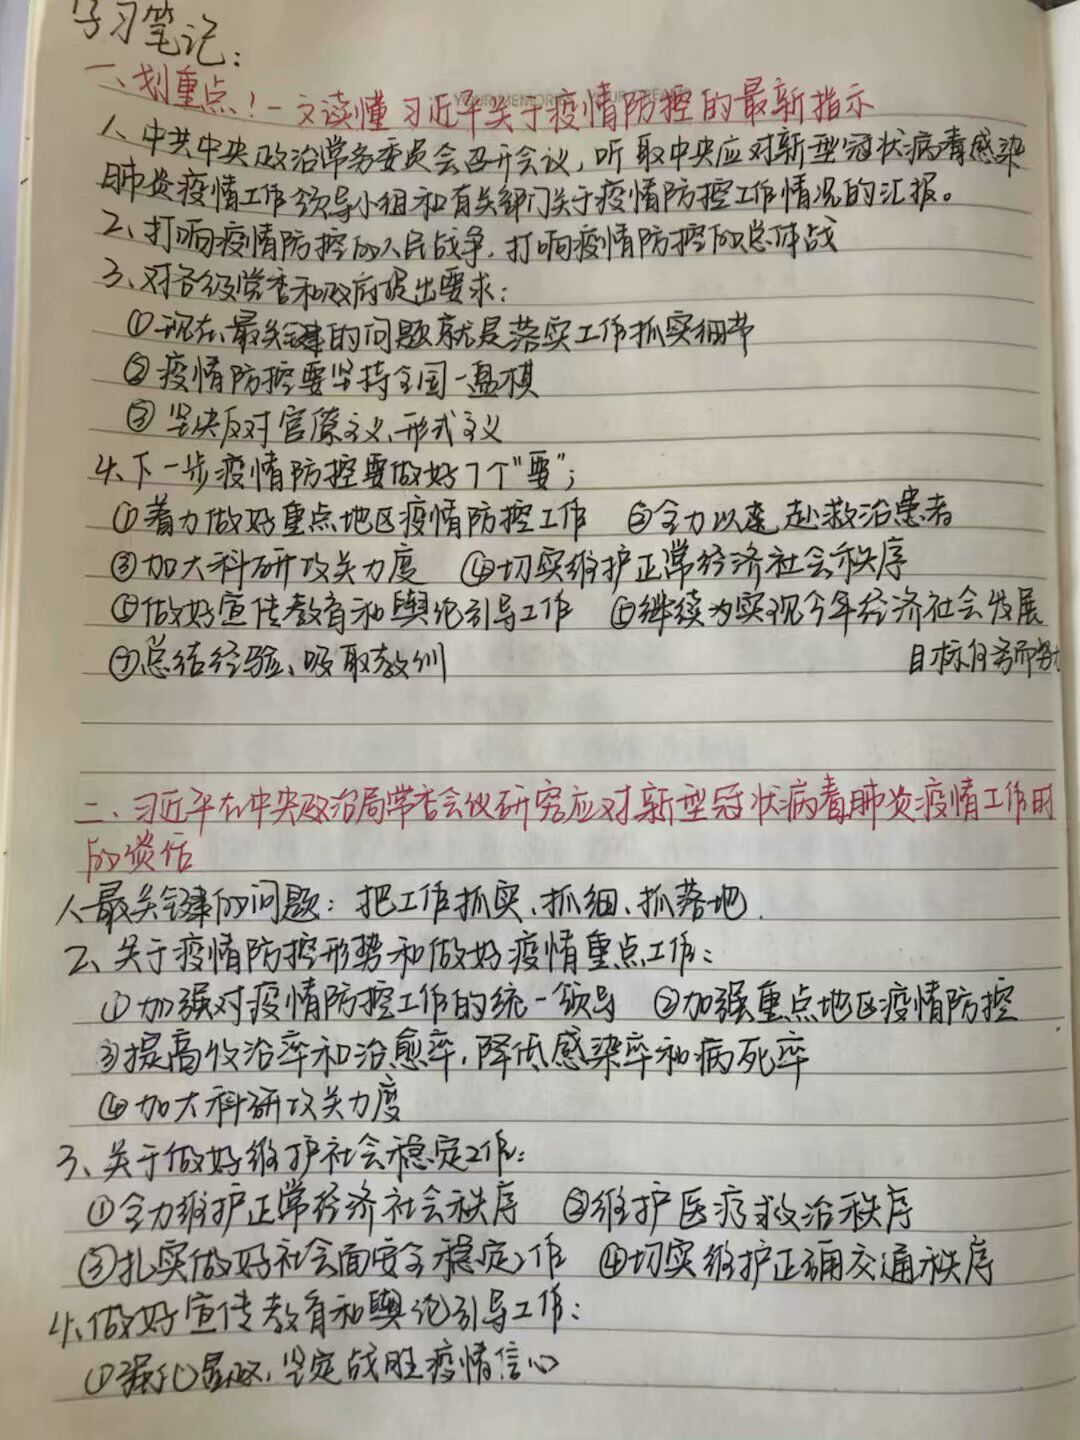 学习笔记：
一、划重点！一文读懂习近平关于疫情防控的最新指示
1、中共中央政治常务委员会召开会议，听取中央应对新型冠状病毒感染
肺炎疫情工作领导小组和有关部门关于疫情防控工作情况的汇报。
2、打响疫情防控的人民战争，打响疫情防控的总体战
3、对各级党委和政府提出要求：
①现在最关键的问题就是落实工作抓实细节
②疫情防控要坚持全国一盘棋
③坚决反对官僚主义、形式主义
4、下一步疫情防控要做好7个“要”；
①着力做好重点地区疫情防控工作 ②全力以赴救治患者
③加大科研攻关力度 ④切实维护正常经济社会秩序
⑤做好宣传教育和舆论引导工作 ⑥继续为实现今年经济社会发展
⑦总结经验、吸取教训 目标任务而努力
二、习近平在中央政治局常委会议研究应对新型冠状病毒肺炎疫情工作时
的谈话
1、最关键的问题：把工作抓实、抓细、抓落地.
2、关于疫情防控形势和做好疫情重点工作：
①加强对疫情防控工作的统一领导 ②加强重点地区疫情防控
③提高收治率和治愈率，降低感染率和病死率
④加大科研攻关力度
3、关于做好维护社会稳定工作：
①全力维护正常经济社会秩序 ②维护医疗救治秩序
③扎实做好社会面安全稳定工作 ④切实维护正确交通秩序
4、做好宣传教育和舆论引导工作：
坚定战胜疫情信心